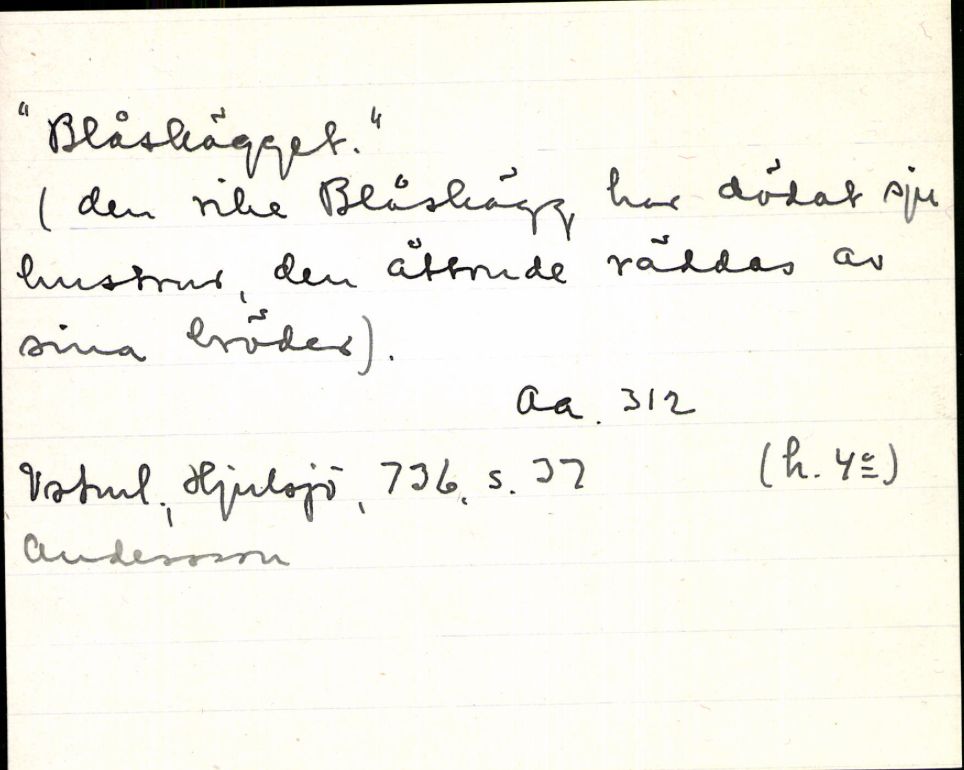 "Blåskägget."
(den rike Blåskägg har dödat sju
hustrur, den åttonde räddas av
sina bröder).
Aa. 312
Vstml., Hjulsjö, 736, s. 37 (h. 4º)
Andersson